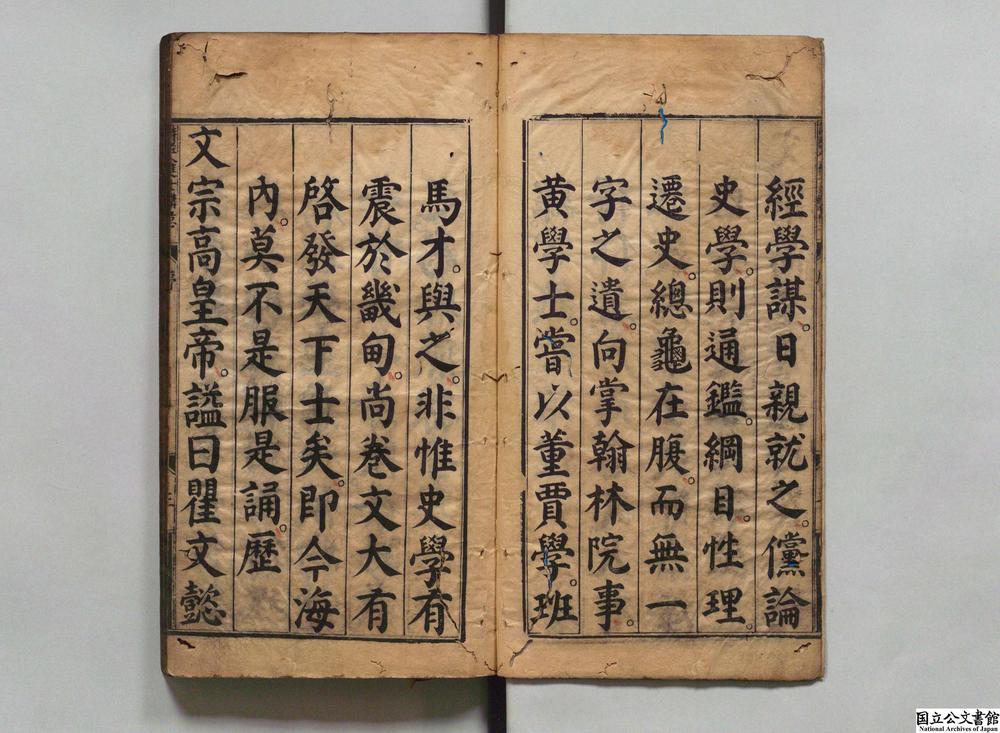 經學謀。日親就之。儻論
史學。則通鑑。綱目。性理。
遷史。總龜在腹而無一
字之遺。向掌翰林院事。
黄學士。嘗以董賈學。班
馬才。與之。非惟史學有
震於畿甸。尚卷文大有
啓發天下士矣。即今海
內。莫不是服是誦。歴
文宗高皇帝。諡曰瞿文懿
国立公文書館
National Archives of Japan